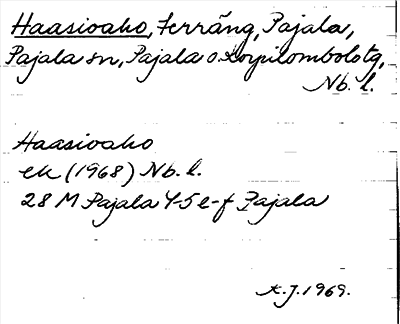 Haasioaho, terräng, Pajala,
Pajala sn, Pajala o. Korpilombolo tg,
Nb. l.
Haasioaho
ek (1968) Nb. l.
28 M Pajala 4-5 e-f Pajala
K.J. 1969.